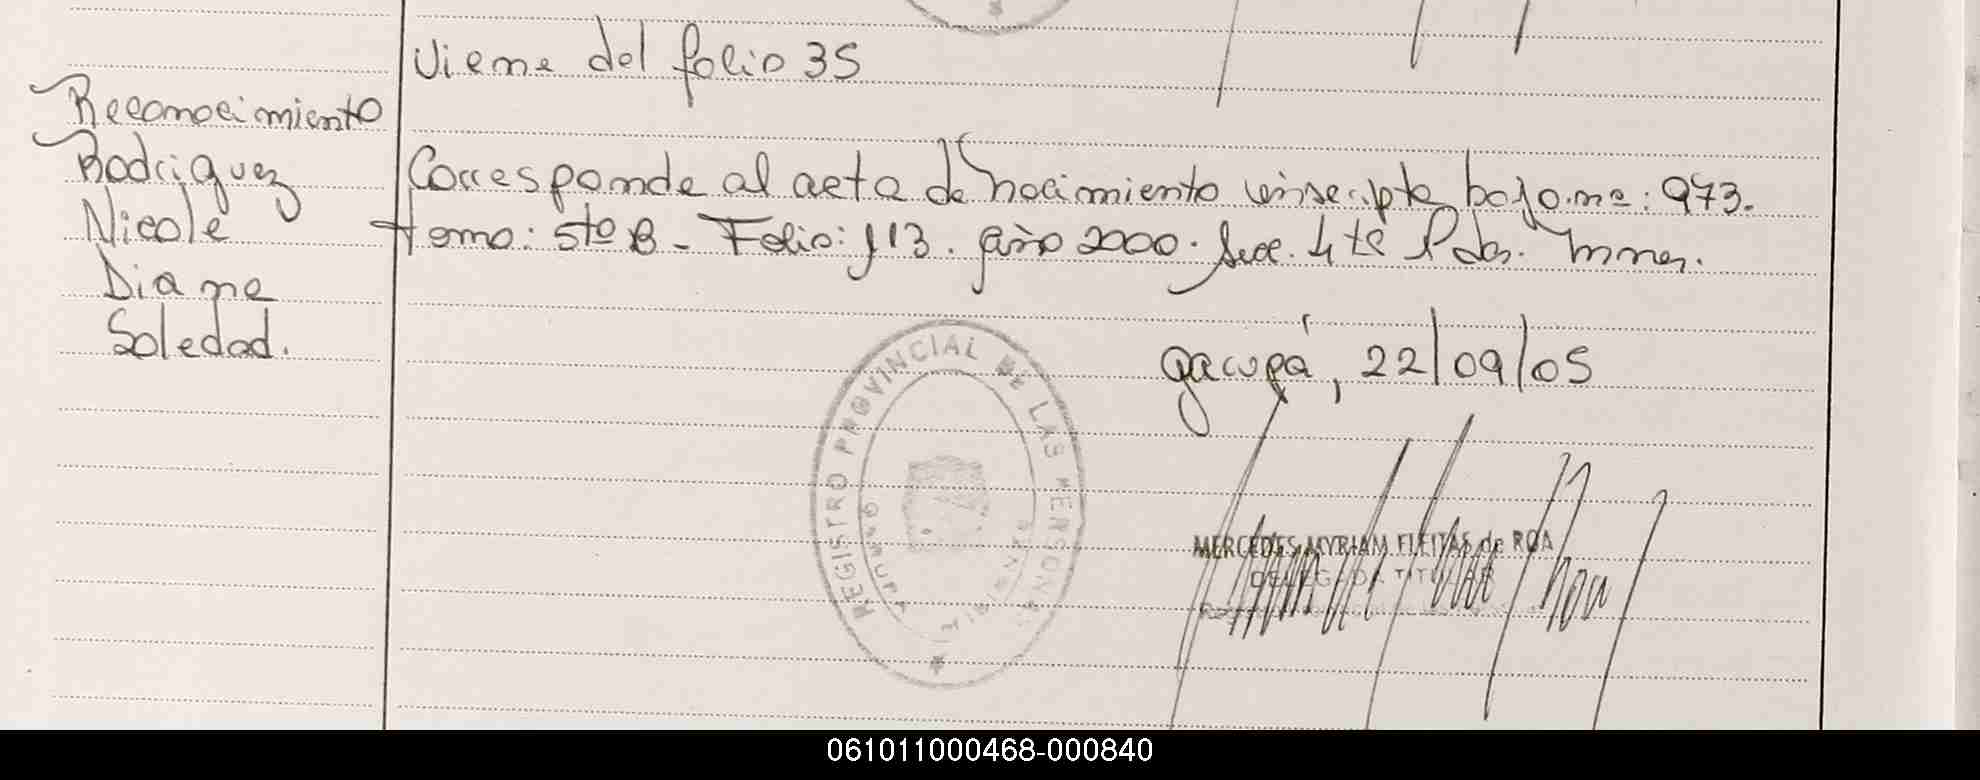 Viene del folio 35
Reconocimiento
Rodriguez
Nicole
Diane
Soledad.
Corresponde al acta de nacimiento inscripta bajo. nº: 973.
tomo: 5to B - Folio: 113. año 2000. Secc. 4ta Pdas. Mnes.
Garupá, 22/09/05
REGISTRO PROVINCIAL DE LAS PERSONAS
GARUPA
MISIONES
MERCEDES MYRIAM FLEITAS de ROA
DELEGADA TITULAR
061011000468-000840